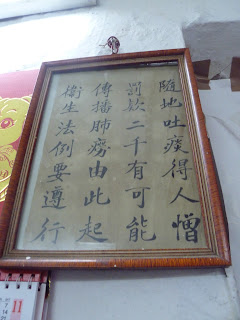 隨地吐痰得人憎
罰款二千有可能
傳播肺癆由此起
衞生法例要遵行
11